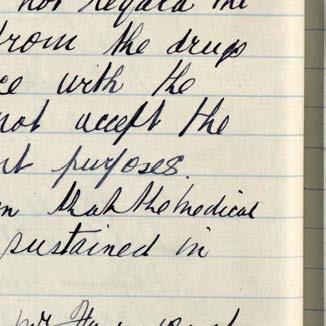 not regard the
from the drugs
ce with the
not accept the
nt purposes.
m that the medical
sustained in
Mr